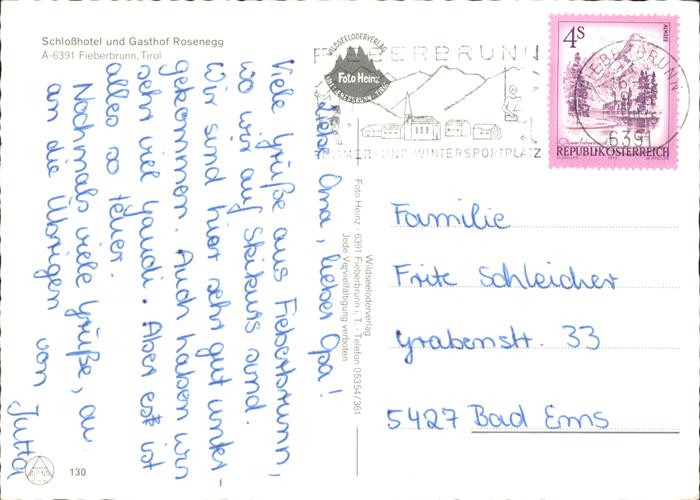 Schloßhotel und Gasthof Rosenegg
A-6391 Fieberbrunn, Tirol
Liebe Oma, lieber Opa!
Viele Grüße aus Fieberbrunn,
wo wir auf Skikurs sind.
Wir sind hier sehr gut unter-
gekommen. Auch haben wir
sehr viel Gaudi. Aber es ist
alles so teuer.
Nochmals viele Grüße, an
an die Übrigen von Jutta
130
Wildseeloderverlag
Foto Heinz · 6391 Fieberbrunn i. T. · Telefon 05354/361
Jede Vervielfältigung verboten
WILDSEELODERVERLAG
Foto Heinz
FIEBERBRUNN
SOMMER-UND WINTERSPORTPLATZ
FIEBERBRUNN
6391
4S
REPUBLIK ÖSTERREICH
Familie
Fritz Schleicher
Grabenstr. 33
5427 Bad Ems